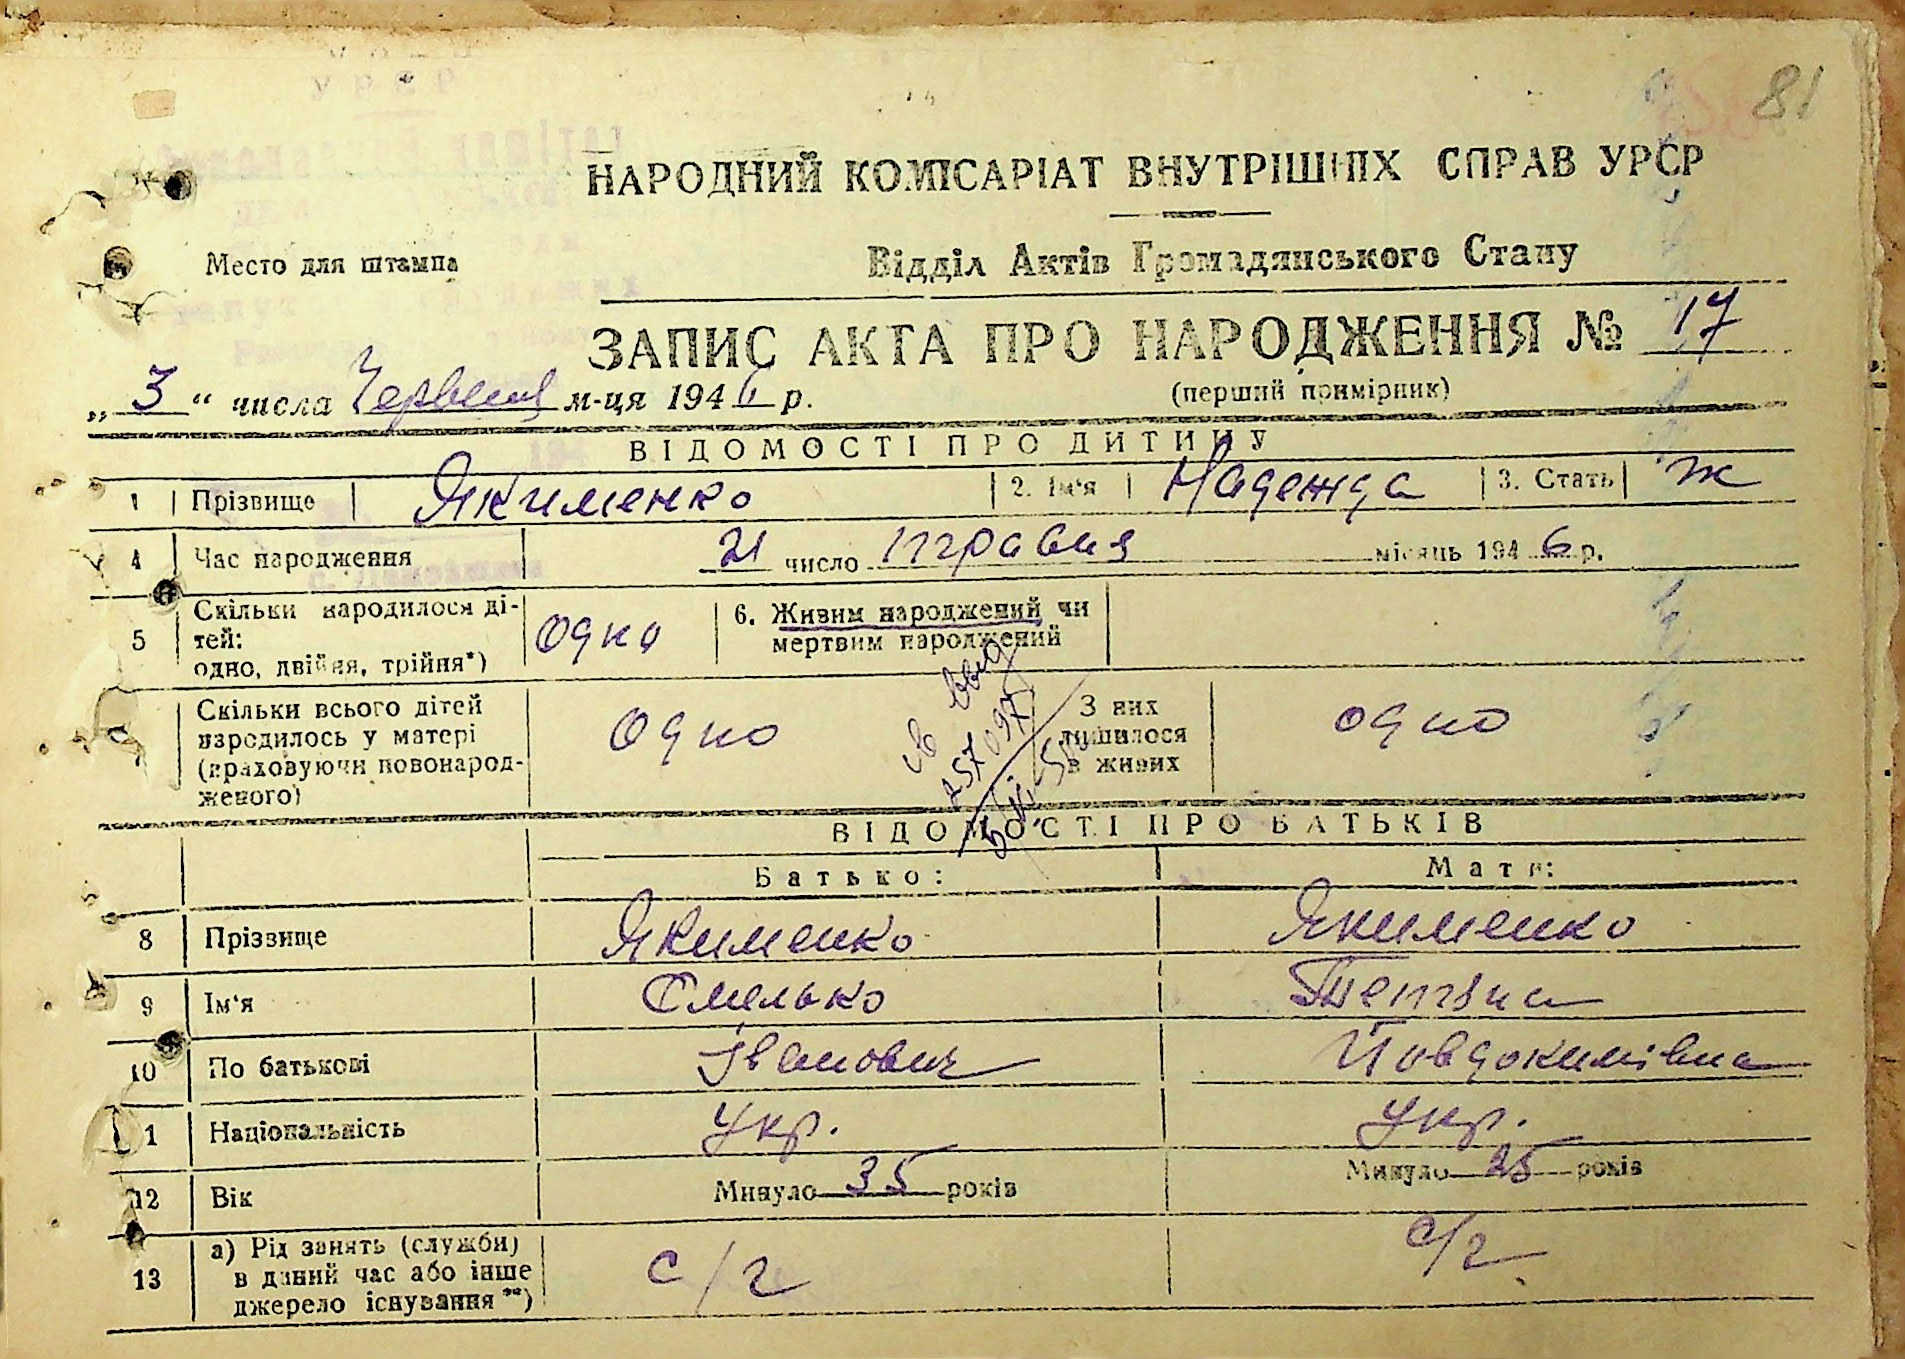 81
НАРОДНИЙ КОМІСАРІАТ ВНУТРІШНІХ СПРАВ УРСР
Место для штампа
Відділ Актів Громадянського Стану
ЗАПИС АКТА ПРО НАРОДЖЕННЯ № 17
(перший примірник)
„3“ числа Червня м-ця 1946 р.
ВІДОМОСТІ ПРО ДИТИНУ
1 Прізвище Якименко 2. Ім'я Надежда 3. Стать ж
4 Час народження 21 число травня місяць 1946 р.
5 Скільки народилося ді-
тей:
одно, двійня, трійня*) одно 6. Живим народжений чи
мертвим народжений
7 Скільки всього дітей
народилось у матері
(враховуючи новонарод-
женого) одно З них
лишилося
в живих одно
257097
ВІДОМОСТІ ПРО БАТЬКІВ
Батько: Мати:
8 Прізвище Якименко Якименко
9 Ім'я Омелько Тетяна
10 По батькові Іванович Йовдокимівна
11 Національність Укр. Укр.
12 Вік Минуло 35 років Минуло 25 років
13 а) Рід занять (служби)
в даний час або інше
джерело існування**) с/г с/г